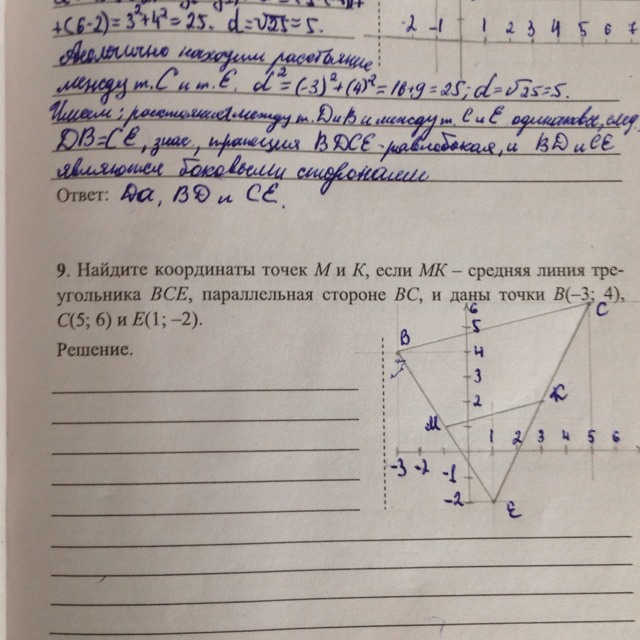 +(6-2)=3²+4²=25. d=√25=5.
-2 -1 1 2 3 4 5 6 7
Аналогично находим расстояние
между т. С и т. Е. d²=(-3)²+(4)²=16+9=25; d=√25=5.
Имеем: расстояния между т. D и B и между т. C и E одинаковы, след,
DB=CE, знач, трапеция BDCE-равнобокая, и BD и CE
являются боковыми сторонами
Ответ: Да, BD и CE.
9. Найдите координаты точек М и К, если МК – средняя линия тре-
угольника ВСЕ, параллельная стороне ВС, и даны точки В(–3; 4),
С(5; 6) и Е(1; –2).
Решение.
6 C
5
B 4
3
2 K
M
1 2 3 4 5 6
-3 -2 -1
-2 E